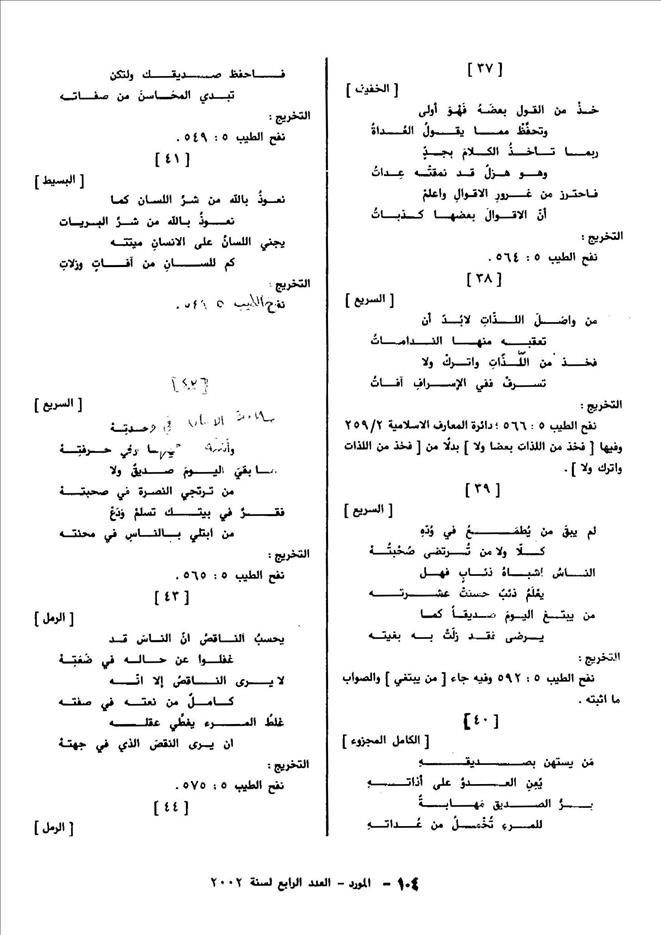 [ ٣٧ ]
[ الخفيف ]
خذْ من القول بعضَهُ فَهْوَ أولى
وتحفّظْ ممـا يقـــولُ العُـداةُ
ربمـــا تـاخـذُ الكلامَ بجـدٍّ
وهــو هـزلٌ قــد نمقتْـه عِـداتُ
فـاحترز من غـرورِ الاقـوالِ واعلمْ
أنّ الاقوالَ بعضهـا كــذبـاتُ
التخريج :
نفح الطيب ٥ : ٥٦٤ .
[ ٣٨ ]
[ السريع ]
من واصَــلَ اللــذّاتِ لابُـدَ أن
تعقبــه منهــا النـدامـاتُ
فخــذ من اللّذّاتِ واتركْ ولا
تسـرفْ ففي الإسـرافِ آفـاتُ
التخريج :
نفح الطيب ٥ : ٥٦٦ ؛ دائرة المعارف الاسلامية ٢٥٩/٢
وفيها [ فخذ من اللذات بعضا ولا ] بدلًا من [ فخذ من اللذات
واترك ولا ] .
[ ٣٩ ]
[ السريع ]
لم يبقَ من يُطمَـــعُ في وُدّهِ
كــلّا ولا من تُــرتضى صُحْبتُــهْ
النــاسُ اشبـاهُ ذئـابٍ فهـل
يعْلَمُ ذئبٌ حسنتْ عشــرتــه
من يبتــغ اليومَ صديقـاً كمـا
يــرضى فقـد زلّتْ بــه بغيتـه
التخريج :
نفح الطيب ٥ : ٥٩٢ وفيه جاء [ من يبتغي ] والصواب
ما اثبته .
[ ٤٠ ]
[ الكامل المجزوء ]
مَن يستهن بصـــديقــــهِ
يُعِنِ العــدوَّ على أذاتــهِ
بــرُّ الصــديق مَهـابــةٌ
للمـرءِ من عُـداتـهِ
فــاحفظ صــديقــك ولتكن
تبـدي المحـاسنَ من صفـاتـه
التخريج :
نفح الطيب ٥ : ٥٤٩ .
[ ٤١ ]
[ البسيط ]
نعـوذُ باللّه من شرّ اللسان كمـا
نعـوذُ بـاللّه من شـرّ البـريـات
يجني اللسانُ على الانسانِ ميتتـه
كم للســـانِ من آفــاتٍ وزلاتِ
التخريج :
نفح الطيب ٥ : ٥٤٦ .
[ ٤٢ ]
[ السريع ]
في وحدتِـهْ
وفي حـرفتِـهْ
بقيَ اليـومَ صـديقٌ ولا
من تـرتجي النصرة في صحبتـهْ
فقــرَّ في بيتــك تسلمْ وَدَعْ
من ابتلي بــالنـاسِ في محنتـه
التخريج :
نفح الطيب ٥ : ٥٦٥ .
[ ٤٣ ]
[ الرمل ]
يحسبُ النـاقصُ انّ النـاسَ قـد
غفلـوا عن حـالـه في ضَعَتِـهْ
لا يــرى النــاقصُ إلا انّــه
كـامـلٌ من نعتـه في صفتـه
غلطُ المــرءِ يغطّي عقلــه
ان يـرى النقصَ الذي في جهتهْ
التخريج :
نفح الطيب ٥ : ٥٧٥ .
[ ٤٤ ]
[ الرمل ]
١٠٤ - المورد - العدد الرابع لسنة ٢٠٠٢